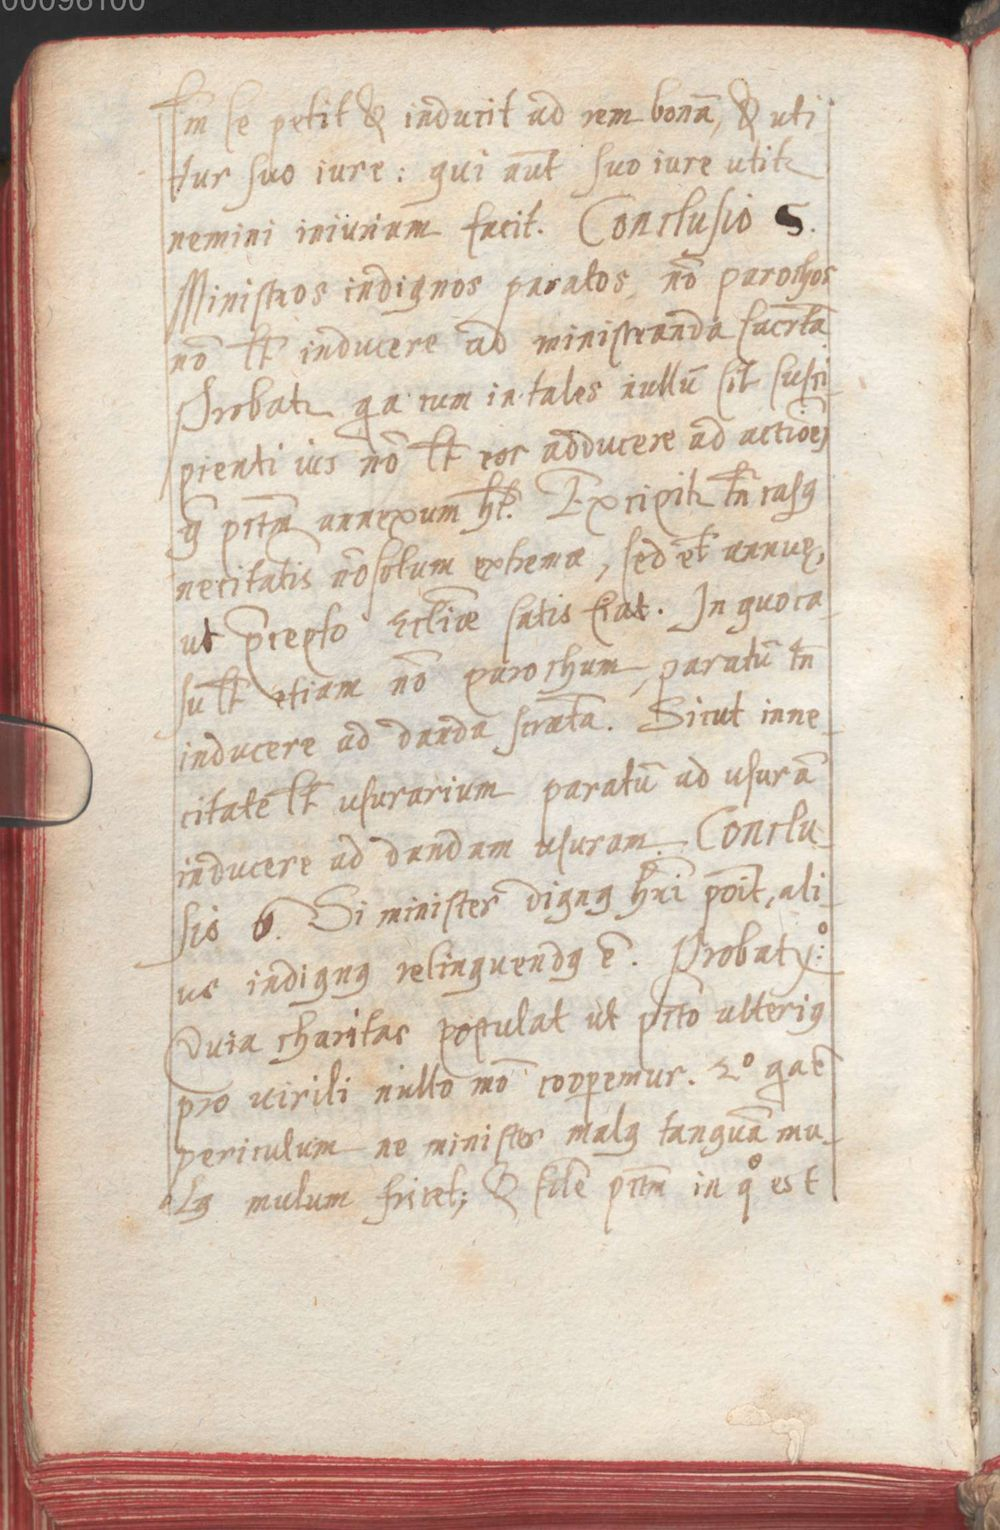 00096100
sm se petit & inducit ad rem bonā, & uti
tur suo iure: qui aūt suo iure utitr
nemini iniuriam facit. Conclusio 5.
Ministros indignos paratos, nō parochos
nō lt inducere ad ministranda sacrta
Probatr qa cum in tales nullū sit susci
pienti ius nō lt eos adducere ad actiōē,
q̄ pctm annexum ht. Excipitr tn casq
necitatis nō solum extrema, sed et annuę,
ut p̄cepto Ecliæ satis fiat. In quo ca
su lt etiam nō parochum, paratū tn
inducere ad danda scrata. Sicut in ne
citate lt usurarium paratū ad usurā
inducere ad dandam usuram. Conclu
sio 6. Si minister dignq hri poīt, ali
us indignq relinquendq ē. Probatr 1º:
Quia charitas postulat ut pcto alteriq
pro virili nullo mō cooperemur. 2º qa ē
periculum ne minister malq tanquā mu
lq mulum fricet; & file pctm in qº est